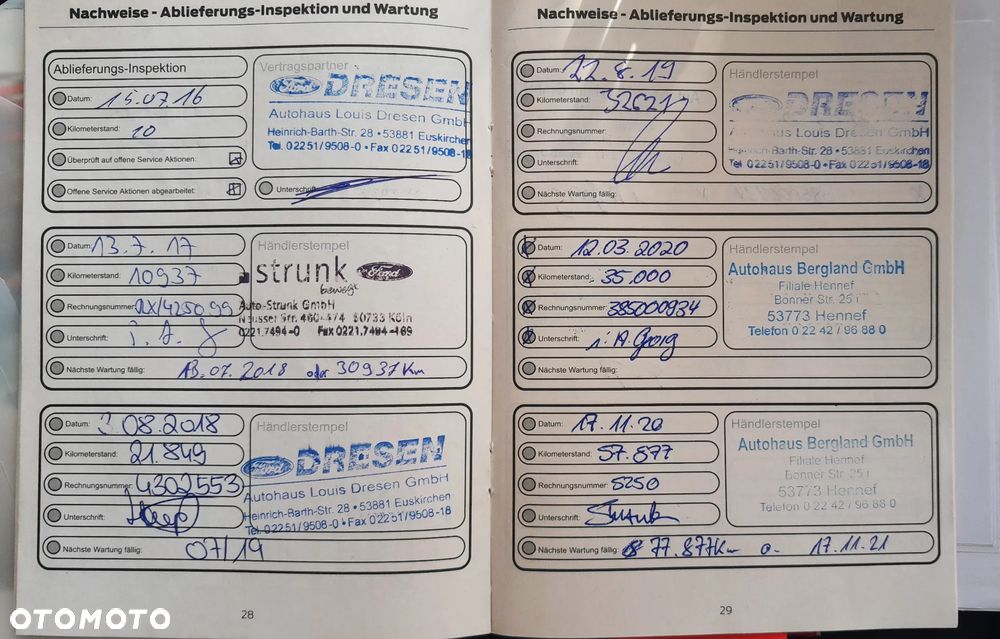 Nachweise - Ablieferungs-Inspektion und Wartung
Ablieferungs-Inspektion
Datum: 15.07.16
Kilometerstand: 10
Überprüft auf offene Service Aktionen:
Offene Service Aktionen abgearbeitet:
Vertragspartner
Ford DRESEN
Autohaus Louis Dresen GmbH
Heinrich-Barth-Str. 28 • 53881 Euskirchen
Tel. 02251/9508-0 • Fax 02251/9508-18
Unterschrift:
Datum: 13.7.17
Kilometerstand: 10937
Rechnungsnummer:
Unterschrift: i.A.
Händlerstempel
strunk Ford
bewegt
Auto-Strunk GmbH
Neusser Str. 460-474 50733 Köln
0221.7494-0 Fax 0221.7494-469
Nächste Wartung fällig: 13.07.2018 oder 30937 Km
Datum: 3.08.2018
Kilometerstand: 21.849
Rechnungsnummer: 4302553
Unterschrift:
Händlerstempel
Ford DRESEN
Autohaus Louis Dresen GmbH
Heinrich-Barth-Str. 28 • 53881 Euskirchen
Tel. 02251/9508-0 • Fax 02251/9508-18
Nächste Wartung fällig: 07/19
28
Nachweise - Ablieferungs-Inspektion und Wartung
Datum: 22.8.19
Kilometerstand:
Rechnungsnummer:
Unterschrift:
Händlerstempel
DRESEN
Autohaus Louis Dresen GmbH
Heinrich-Barth-Str. 28 • 53881 Euskirchen
Tel. 02251/9508-0 • Fax 02251/9508-18
Nächste Wartung fällig:
Datum: 12.03.2020
Kilometerstand: 35.000
Rechnungsnummer: 385000934
Unterschrift: i.A.
Händlerstempel
Autohaus Bergland GmbH
Filiale Hennef
Bonner Str. 25 i
53773 Hennef
Telefon 0 22 42 / 96 88 0
Nächste Wartung fällig:
Datum: 17.11.20
Kilometerstand: 57.877
Rechnungsnummer: 5250
Unterschrift:
Händlerstempel
Autohaus Bergland GmbH
Filiale Hennef
Bonner Str. 25 i
53773 Hennef
Telefon 0 22 42 / 96 88 0
Nächste Wartung fällig: 77.877Km o. 17.11.21
29
OTOMOTO